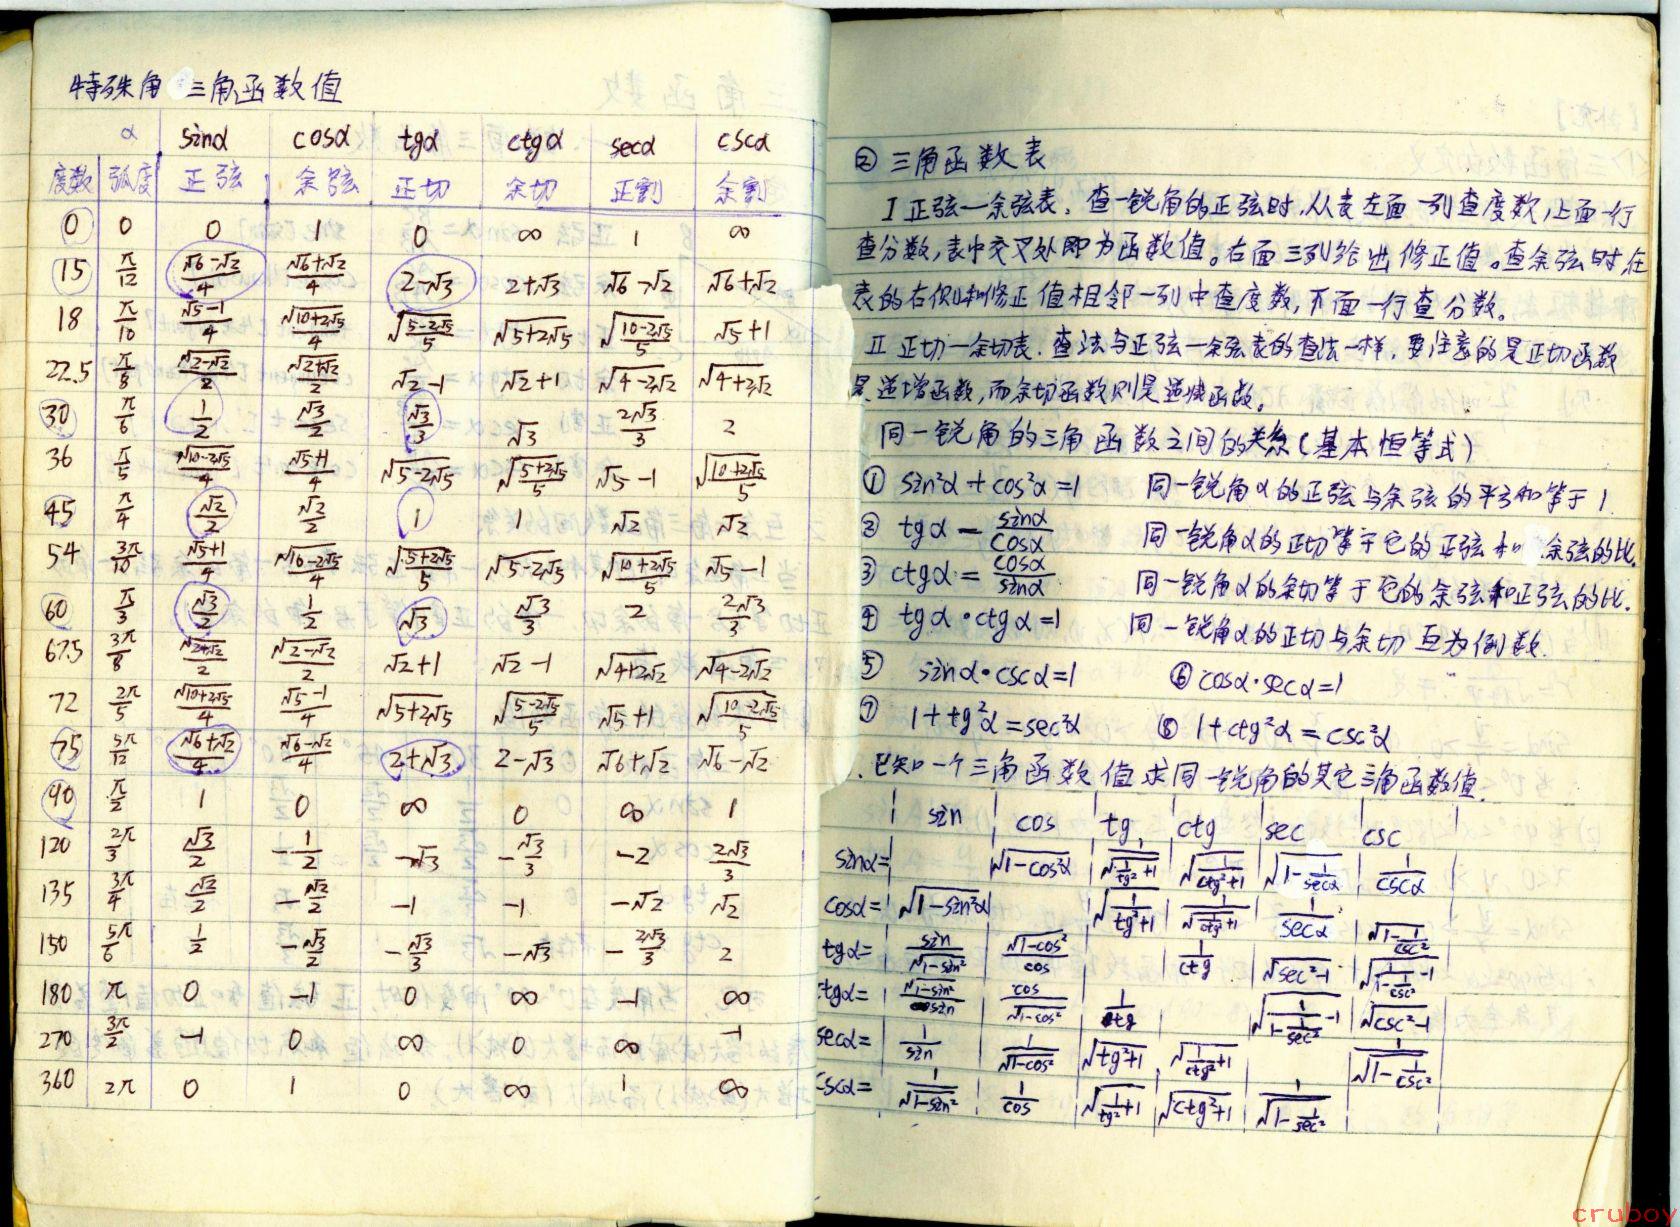 特殊角 三角函数值
α sinα cosα tgα ctgα secα cscα
度数 弧度 正弦 余弦 正切 余切 正割 余割
0 0 0 1 0 ∞ 1 ∞
15 π/12 (√6-√2)/4 (√6+√2)/4 2-√3 2+√3 √6-√2 √6+√2
18 π/10 (√5-1)/4 √(10+2√5)/4 √((5-2√5)/5) √(5+2√5) √((10-2√5)/5) √5+1
22.5 π/8 √(2-√2)/2 √(2+√2)/2 √2-1 √2+1 √(4-2√2) √(4+2√2)
30 π/6 1/2 √3/2 √3/3 √3 2√3/3 2
36 π/5 √(10-2√5)/4 (√5+1)/4 √(5-2√5) √((5+2√5)/5) √5-1 √((10+2√5)/5)
45 π/4 √2/2 √2/2 1 1 √2 √2
54 3π/10 (√5+1)/4 √(10-2√5)/4 √((5+2√5)/5) √(5-2√5) √((10+2√5)/5) √5-1
60 π/3 √3/2 1/2 √3 √3/3 2 2√3/3
67.5 3π/8 √(2+√2)/2 √(2-√2)/2 √2+1 √2-1 √(4+2√2) √(4-2√2)
72 2π/5 √(10+2√5)/4 (√5-1)/4 √(5+2√5) √((5-2√5)/5) √5+1 √((10-2√5)/5)
75 5π/12 (√6+√2)/4 (√6-√2)/4 2+√3 2-√3 √6+√2 √6-√2
90 π/2 1 0 ∞ 0 ∞ 1
120 2π/3 √3/2 -1/2 -√3 -√3/3 -2 2√3/3
135 3π/4 √2/2 -√2/2 -1 -1 -√2 √2
150 5π/6 1/2 -√3/2 -√3/3 -√3 -2√3/3 2
180 π 0 -1 0 ∞ -1 ∞
270 3π/2 -1 0 ∞ 0 ∞ -1
360 2π 0 1 0 ∞ 1 ∞
② 三角函数表
I 正弦一余弦表。查一锐角的正弦时,从表左面一列查度数,上面一行
查分数,表中交叉处即为函数值。右面三列给出修正值。查余弦时,在
表的右侧和修正值相邻一列中查度数,下面一行查分数。
II 正切一余切表.查法与正弦一余弦表的查法一样,要注意的是正切函数
是递增函数,而余切函数则是递减函数。
同一锐角的三角函数之间的关系(基本恒等式)
① sin²α+cos²α=1 同一锐角α的正弦与余弦的平方和等于1.
② tgα=sinα/cosα 同一锐角α的正切等于它的正弦和余弦的比.
③ ctgα=cosα/sinα 同一锐角α的余切等于它的余弦和正弦的比.
④ tgα·ctgα=1 同一锐角α的正切与余切互为倒数.
⑤ sinα·cscα=1 ⑥ cosα·secα=1
⑦ 1+tg²α=sec²α ⑧ 1+ctg²α=csc²α
.已知一个三角函数值求同一锐角的其它三角函数值.
sin cos tg ctg sec csc
sinα= √(1-cos²α) √(1/(1/tg²+1)) √(1/(ctg²+1)) √(1-1/secα) 1/cscα
cosα= √(1-sin²α) √(1/(tg²+1)) 1/√(1/ctg²+1) 1/secα √(1-1/csc²)
tgα= sin/√(1-sin²) √(1-cos²)/cos 1/ctg √(sec²-1) √(1/(1-1/csc²)-1)
ctgα= √(1-sin²)/sin cos/√(1-cos²) 1/tg √(1/(1-1/sec²)-1) √(csc²-1)
secα= 1/sin 1/√(1-cos²) √(tg²+1) √(1/ctg²+1) 1/√(1-1/csc²)
cscα= 1/√(1-sin²) 1/cos √(1/tg²+1) √(ctg²+1) 1/√(1-1/sec²)
cruboy